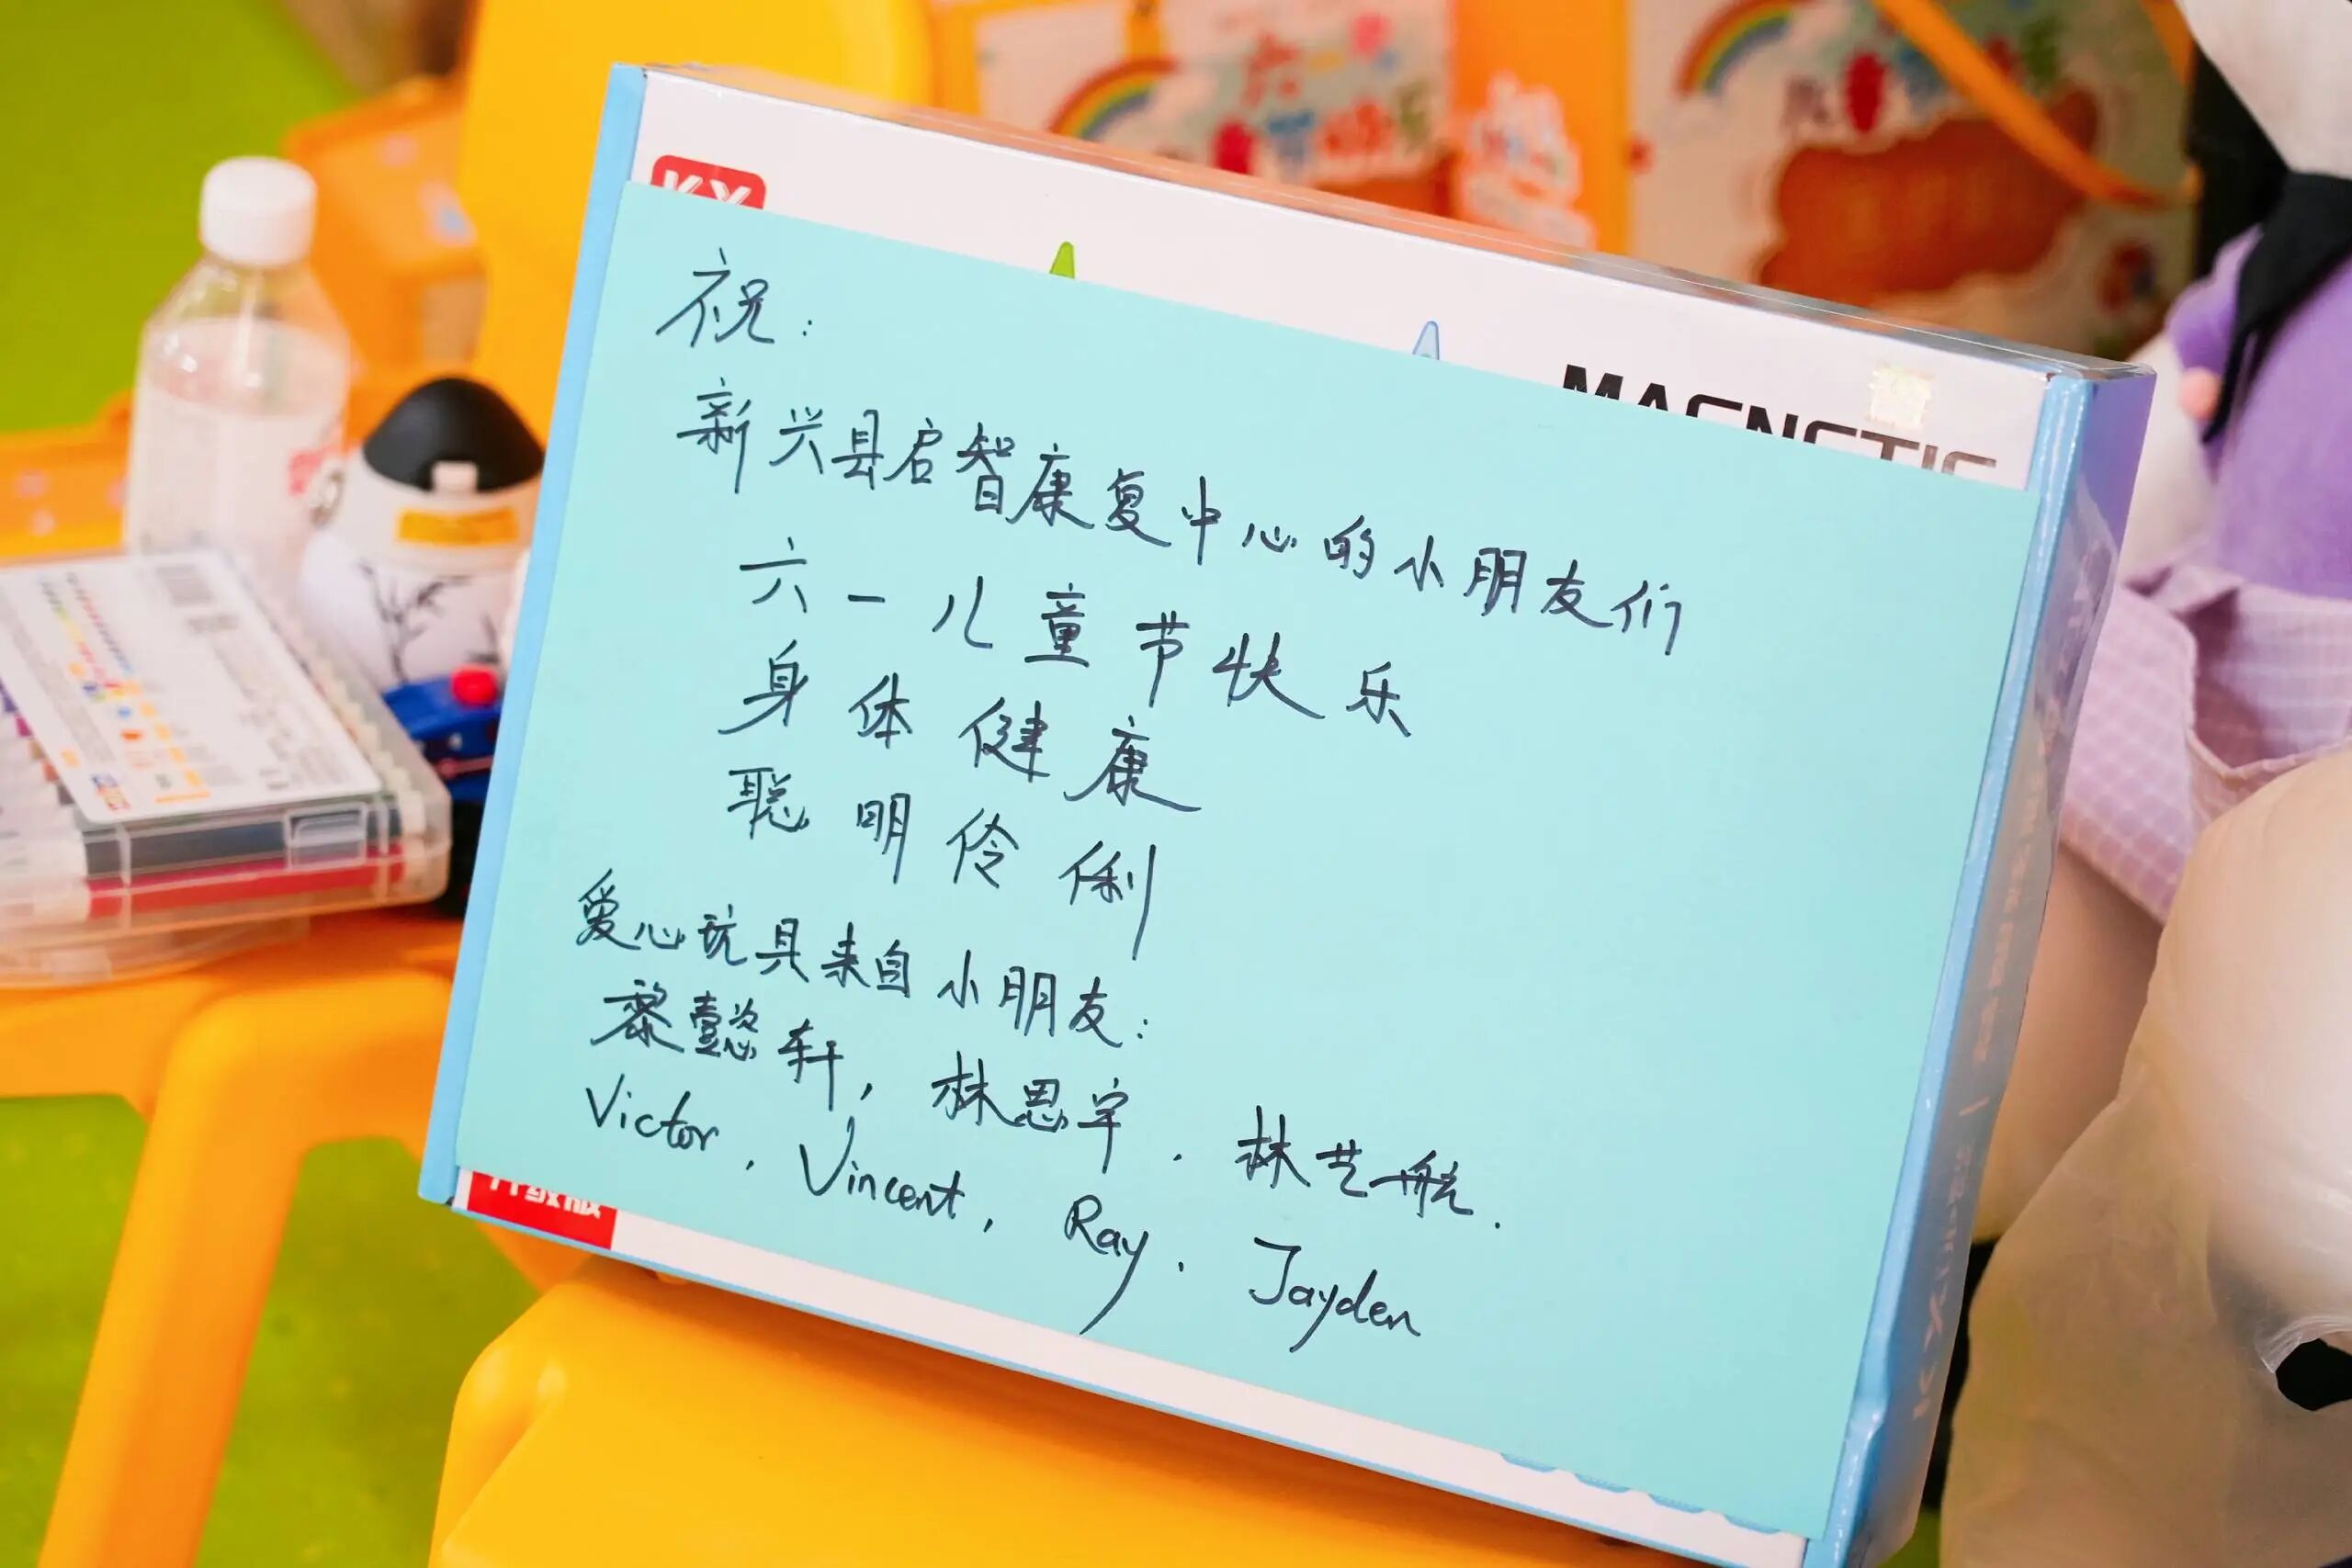 祝:
新兴县启智康复中心的小朋友们
六一儿童节快乐
身体健康
聪明伶俐
爱心玩具来自小朋友:
黎懿轩, 林思宇. 林艺航.
Victor, Vincent, Ray. Jayden
MAGNETIC
KX
升级版